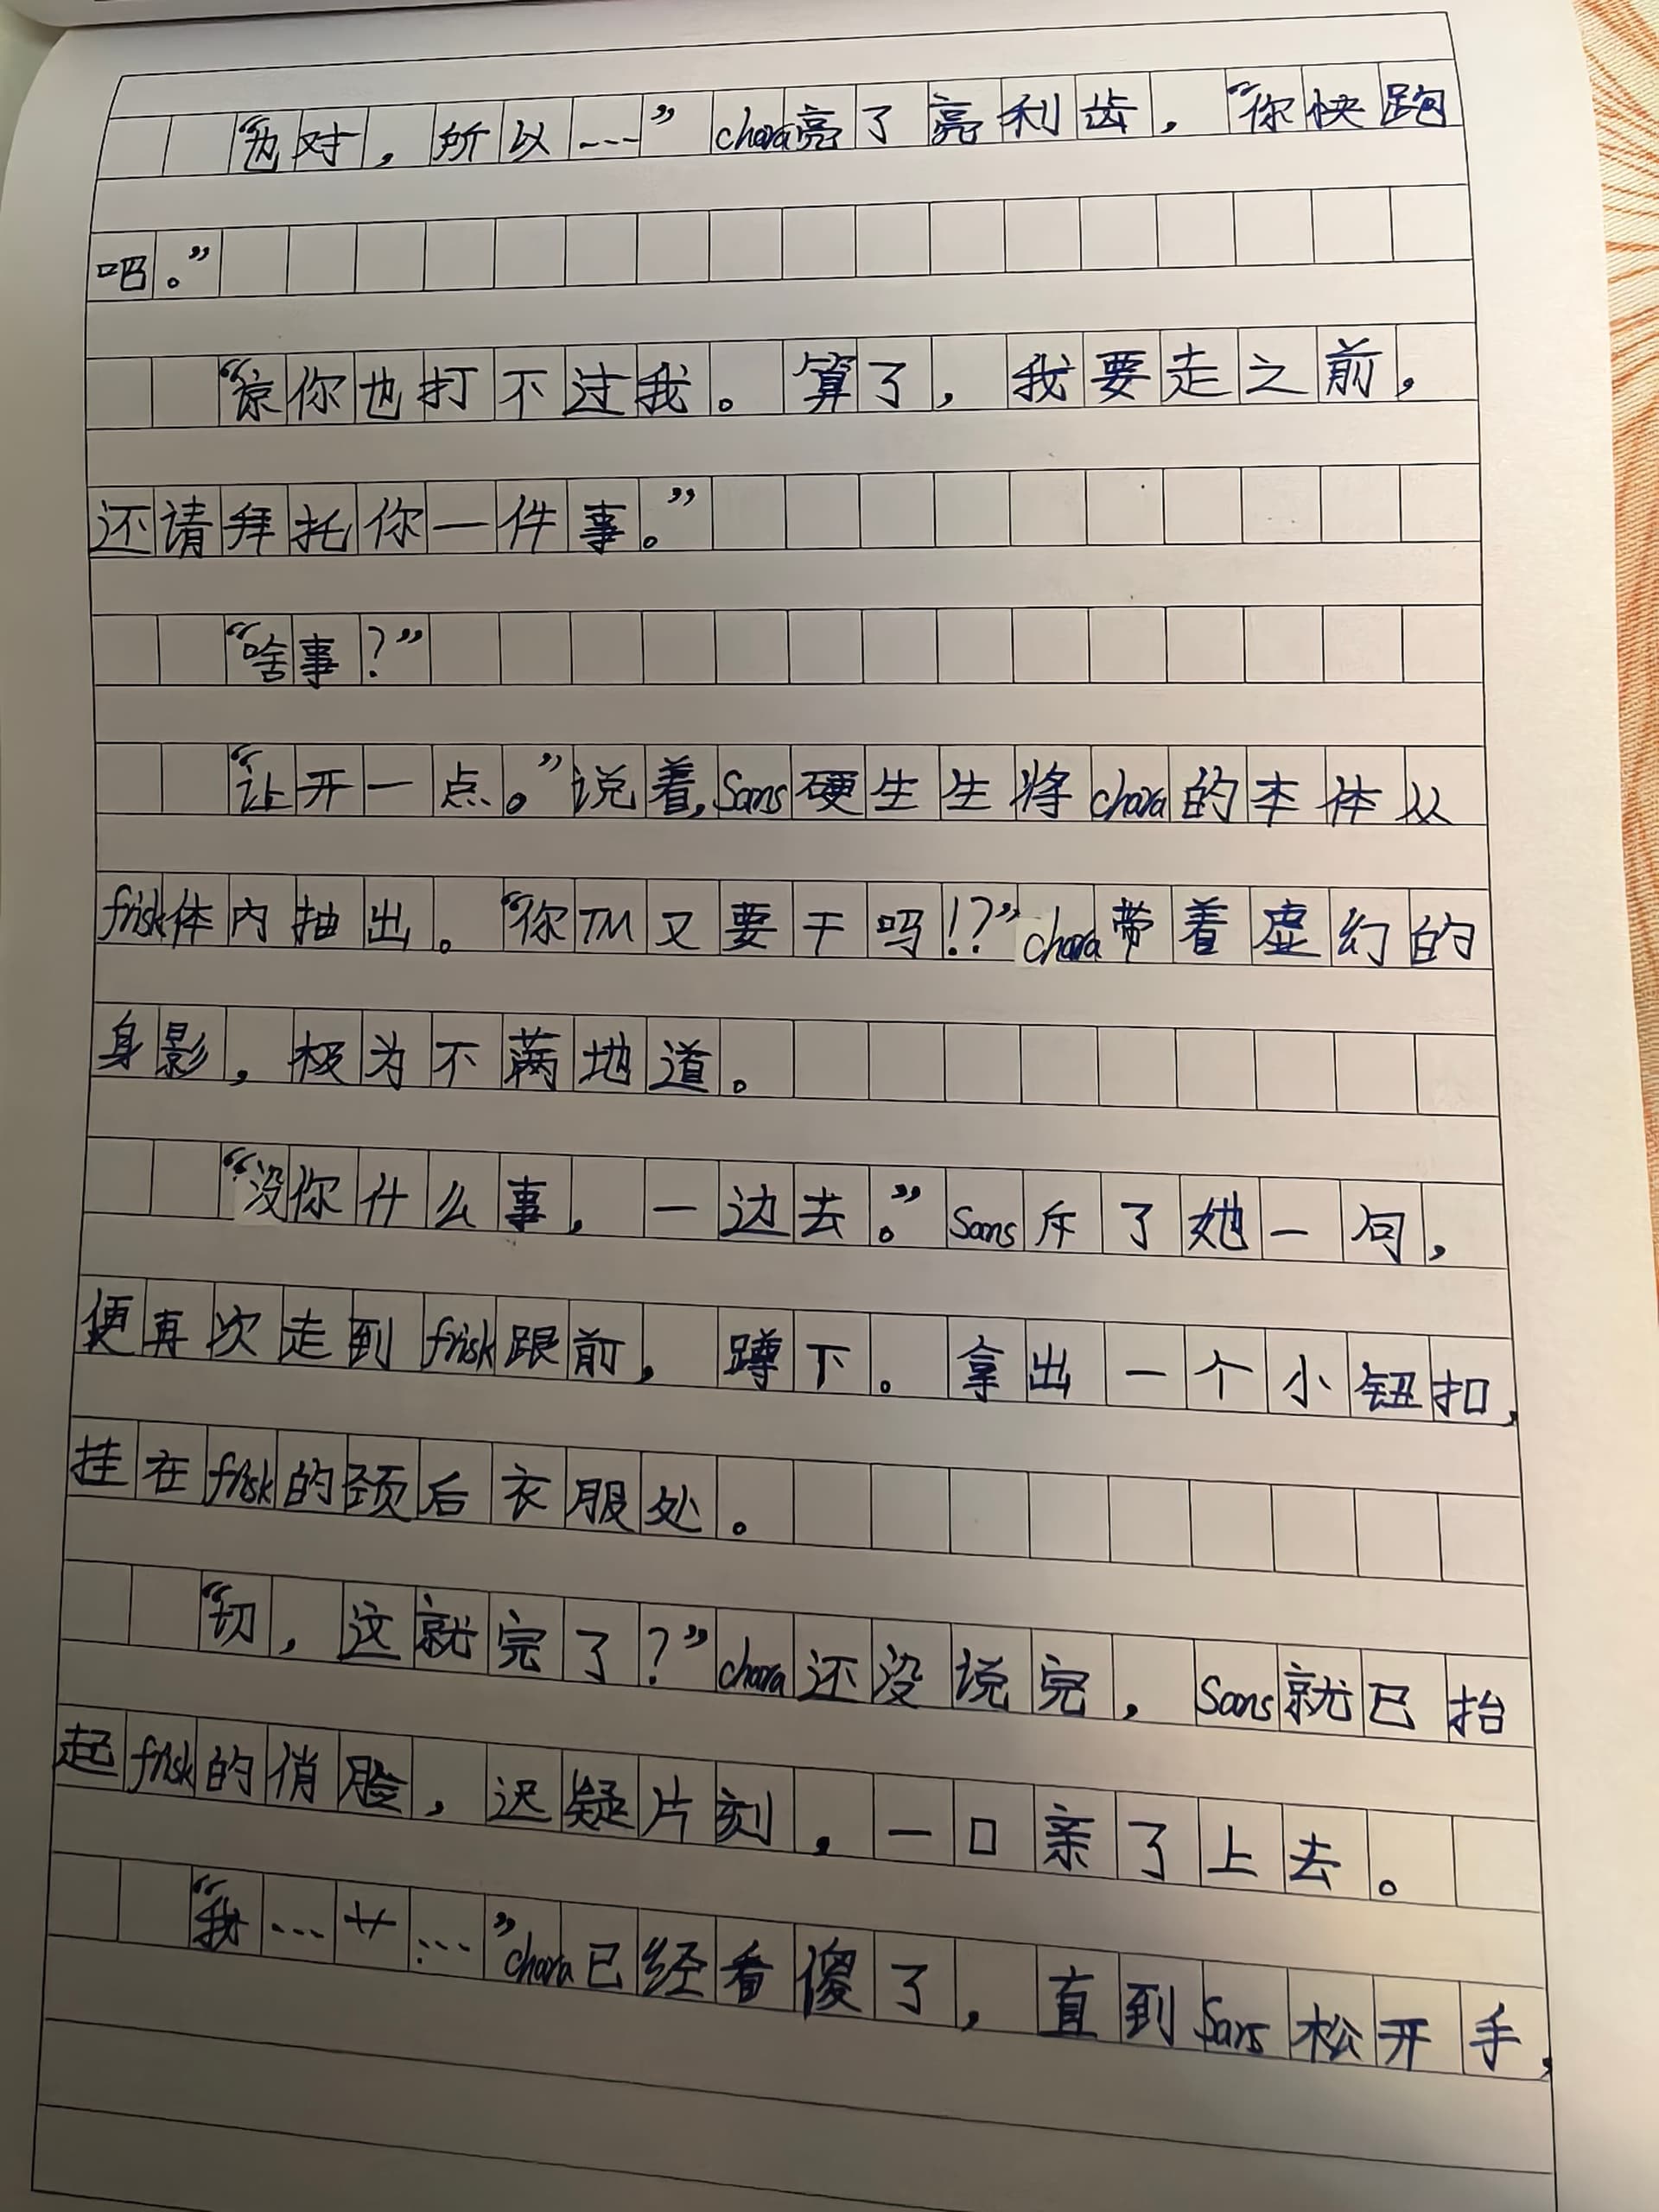 “也对，所以……”chara亮了亮利齿，“你快跑
吧。”
“谅你也打不过我。算了，我要走之前，
还请拜托你一件事。”
“啥事？”
“让开一点。”说着，Sans硬生生将chara的本体从
frisk体内抽出。“你TM又要干吗!？”chara带着虚幻的
身影，极为不满地道。
“没你什么事，一边去。”Sans斥了她一句，
便再次走到frisk跟前，蹲下。拿出一个小钮扣，
挂在frisk的颈后衣服处。
“切，这就完了？”chara还没说完，Sans就已抬
起frisk的俏脸，迟疑片刻，一口亲了上去。
“我……艹……”chara已经看傻了，直到Sans松开手，